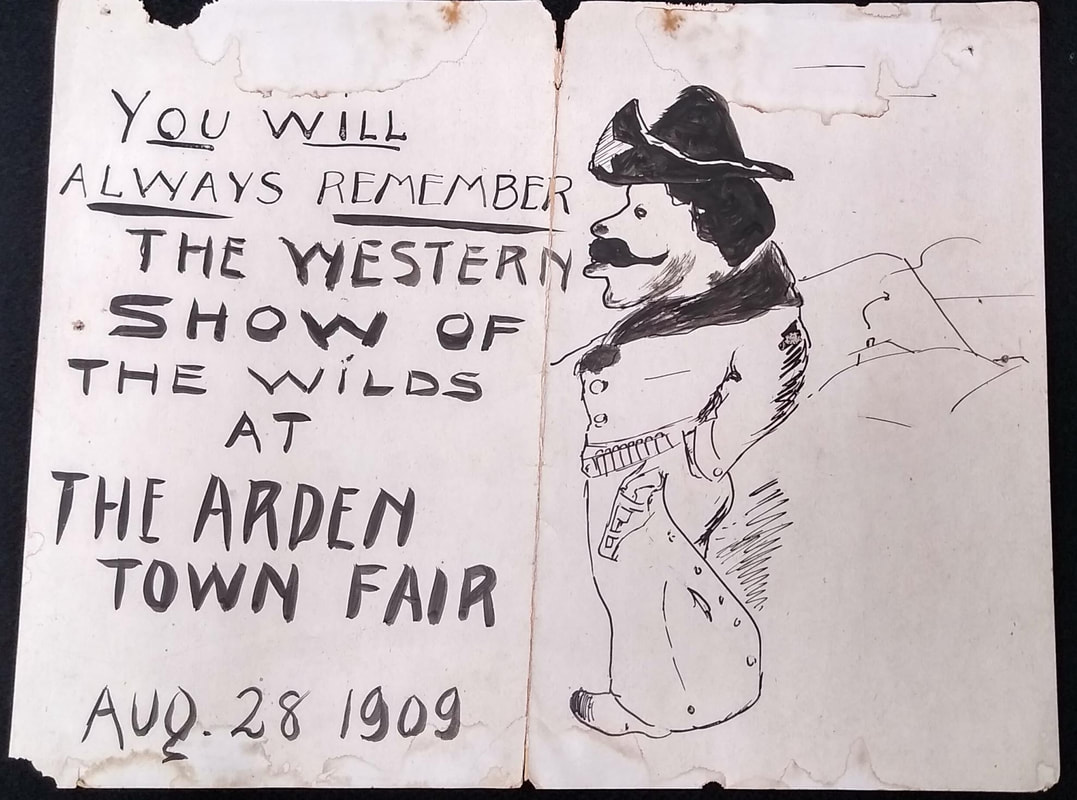 YOU WiLL
ALWAYS REMEMBER
THE WESTERN
SHOW OF
THE WiLDS
AT
THE ARDEN
TOWN FAIR
AUG. 28 1909